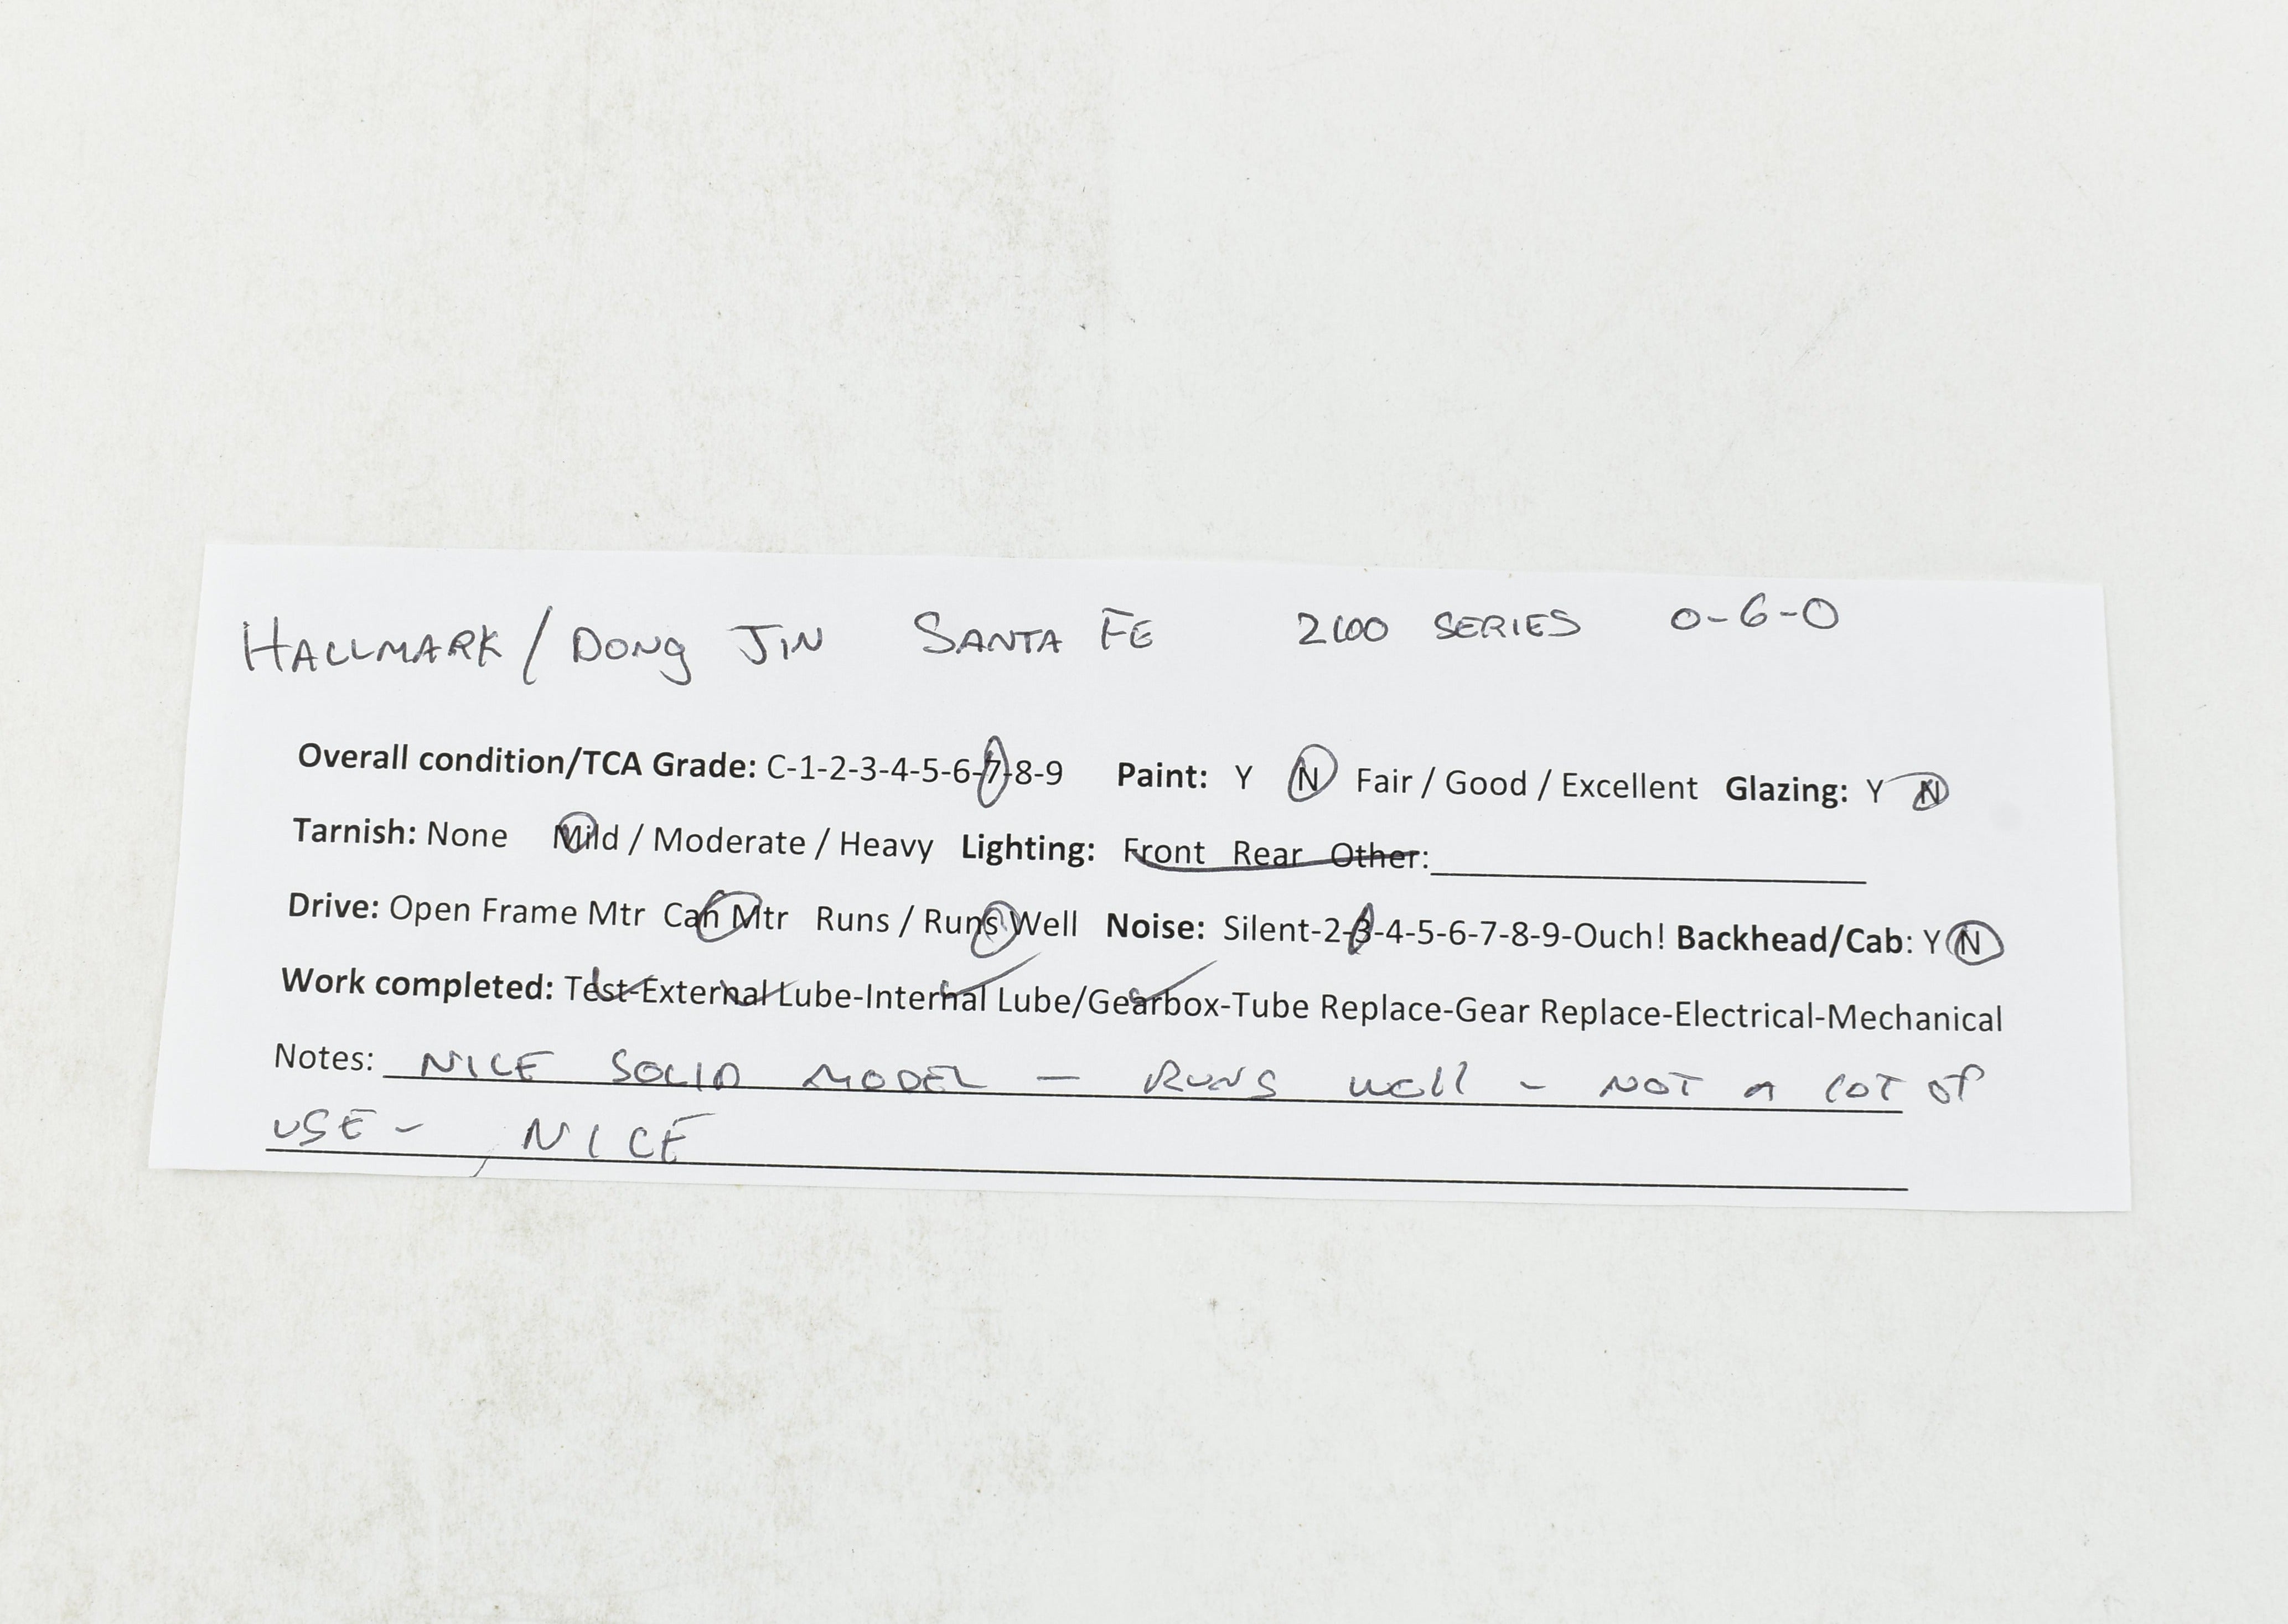 HALLMARK / DONG JIN SANTA FE 2100 SERIES 0-6-0
Overall condition/TCA Grade: C-1-2-3-4-5-6-7-8-9 Paint: Y N Fair / Good / Excellent Glazing: Y N
Tarnish: None Mild / Moderate / Heavy Lighting: Front Rear Other:
Drive: Open Frame Mtr Can Mtr Runs / Runs Well Noise: Silent-2-3-4-5-6-7-8-9-Ouch! Backhead/Cab: Y N
Work completed: Test-External Lube-Internal Lube/Gearbox-Tube Replace-Gear Replace-Electrical-Mechanical
Notes: NICE SOLID MODEL — RUNS WELL - NOT A LOT OF
USE - NICE